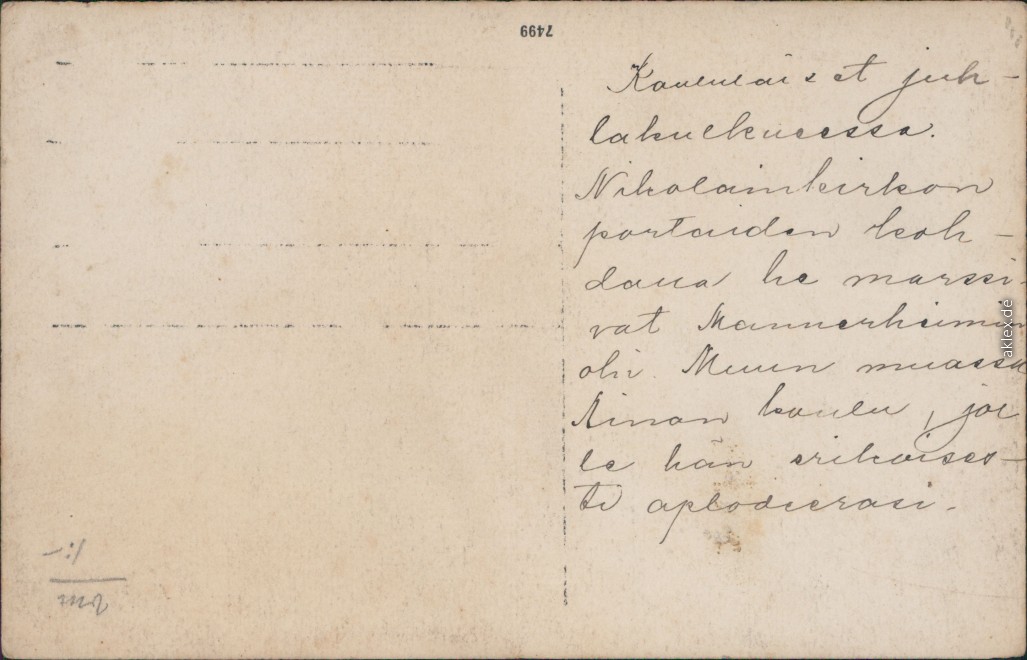 7499
Koululaiset juh-
lakulkueessa.
Nikolainkirkon
portaiden koh-
dalla he marssi-
vat Mannerheimin
ohi. Muun muassa
Ainon koulu, jol
le hän erikoises-
ti aplodeerasi.
aklex.de